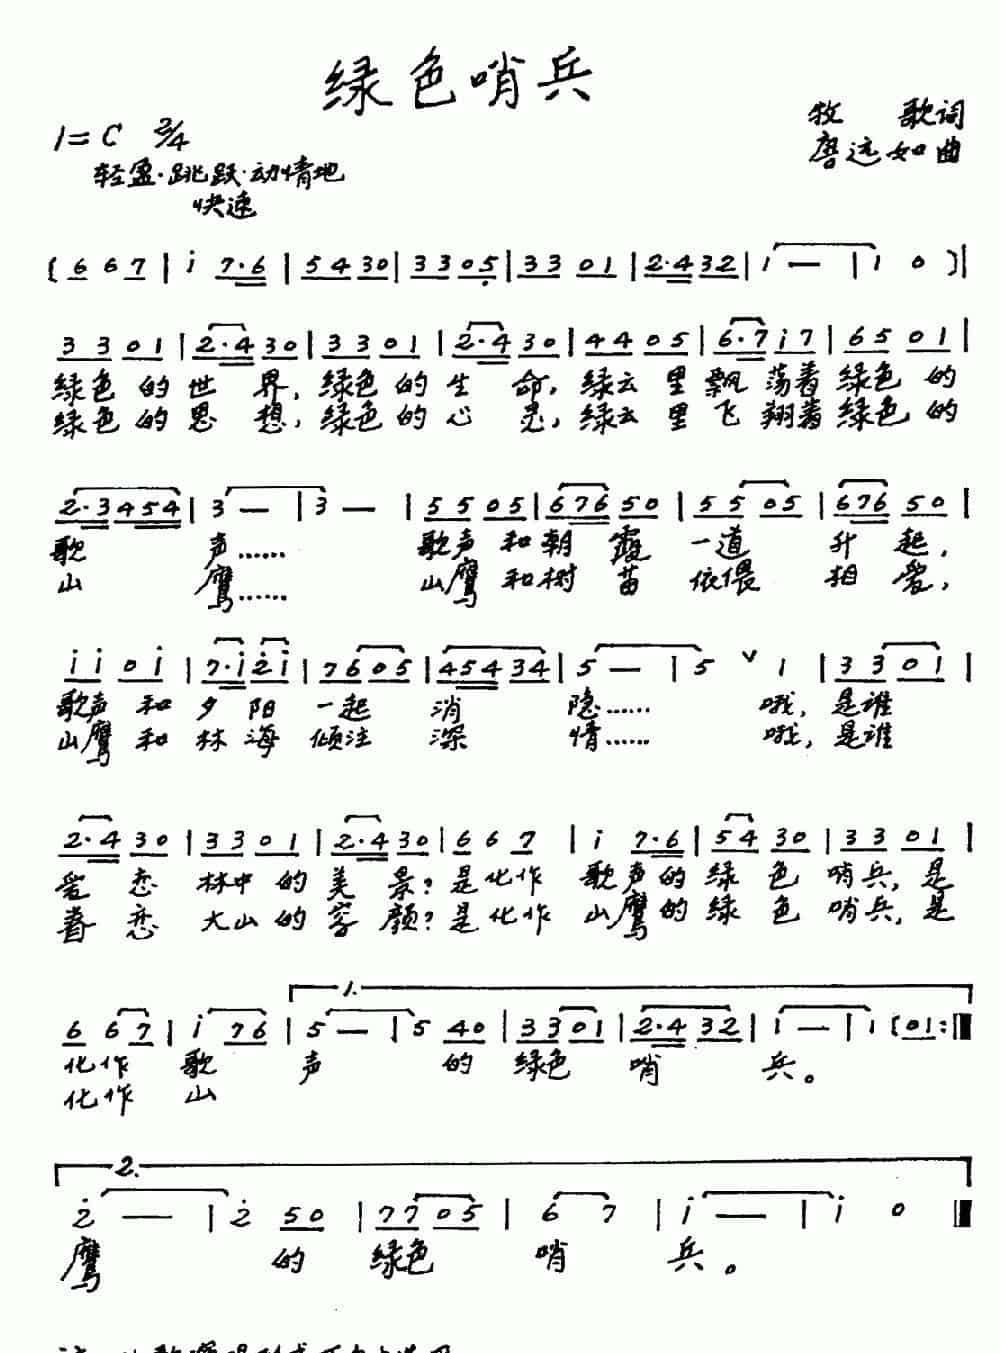 绿色哨兵
1=C 2/4
牧 歌词
唐远如曲
轻盈·跳跃·动情地
快速
(6 6 7 | i 7·6 | 5 4 3 0 | 3 3 0 5 | 3 3 0 1 | 2·4 3 2 | 1 — | 1 0 )|
3 3 0 1 | 2·4 3 0 | 3 3 0 1 | 2·4 3 0 | 4 4 0 5 | 6·7 i 7 | 6 5 0 1 |
绿色的世界,绿色的生命,绿云里飘荡着绿色的
绿色的思想,绿色的心灵,绿云里飞翔着绿色的
2·3 4 5 4 | 3 — | 3 — | 5 5 0 5 | 6 7 6 5 0 | 5 5 0 5 | 6 7 6 5 0 |
歌 声…… 歌声和朝霞一道升起,
山 鹰…… 山鹰和树苗依偎相爱,
i i 0 i | 7·i 2 i | 7 6 0 5 | 4 5 4 3 4 | 5 — | 5 ∨ 1 | 3 3 0 1 |
歌声和夕阳一起消隐…… 哦,是谁
山鹰和林海倾注深情…… 哦,是谁
2·4 3 0 | 3 3 0 1 | 2·4 3 0 | 6 6 7 | i 7·6 | 5 4 3 0 | 3 3 0 1 |
爱恋林中的美景?是化作歌声的绿色哨兵,是
眷恋大山的容颜?是化作山鹰的绿色哨兵,是
1.
6 6 7 | i 7 6 | 5 — | 5 4 0 | 3 3 0 1 | 2·4 3 2 | 1 — | 1 (0 1 :||
化作歌声的绿色哨兵。
化作山
2.
2 — | 2 5 0 | 7 7 0 5 | 6 7 | i — | i 0 ||
鹰的绿色哨兵。